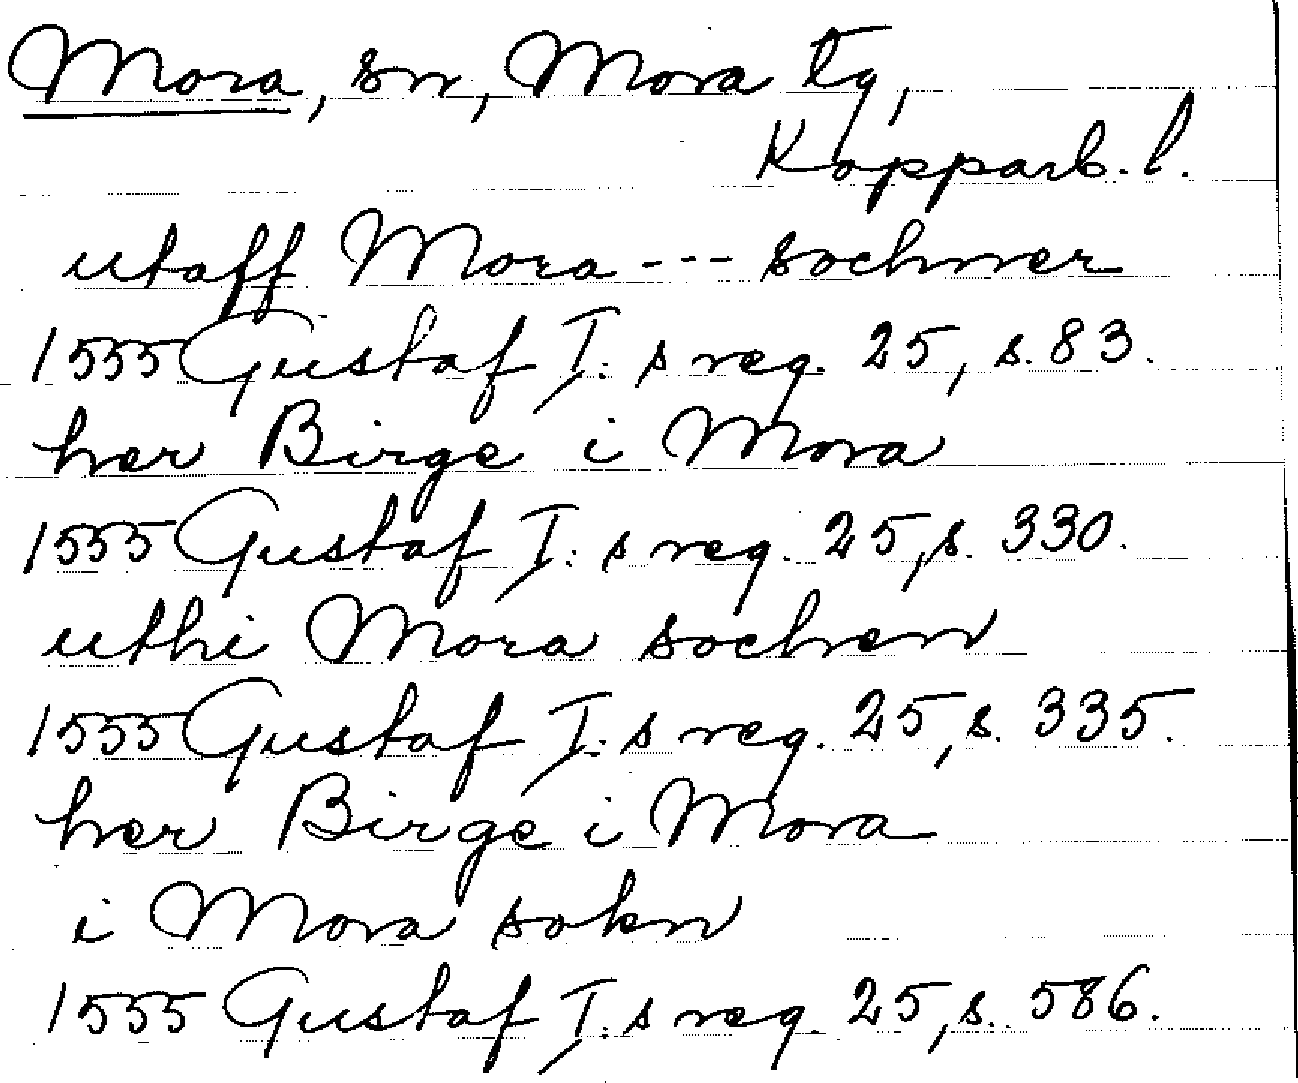 Mora, sn, Mora tg,
Kopparb. l.
utaff Mora --- sochner
1555 Gustaf I:s reg. 25, s. 83.
her Birge i Mora
1555 Gustaf I:s reg. 25, s. 330.
uthi Mora sochen
1555 Gustaf I:s reg. 25, s. 335.
her Birge i Mora
i Mora sokn
1555 Gustaf I:s reg. 25, s. 586.